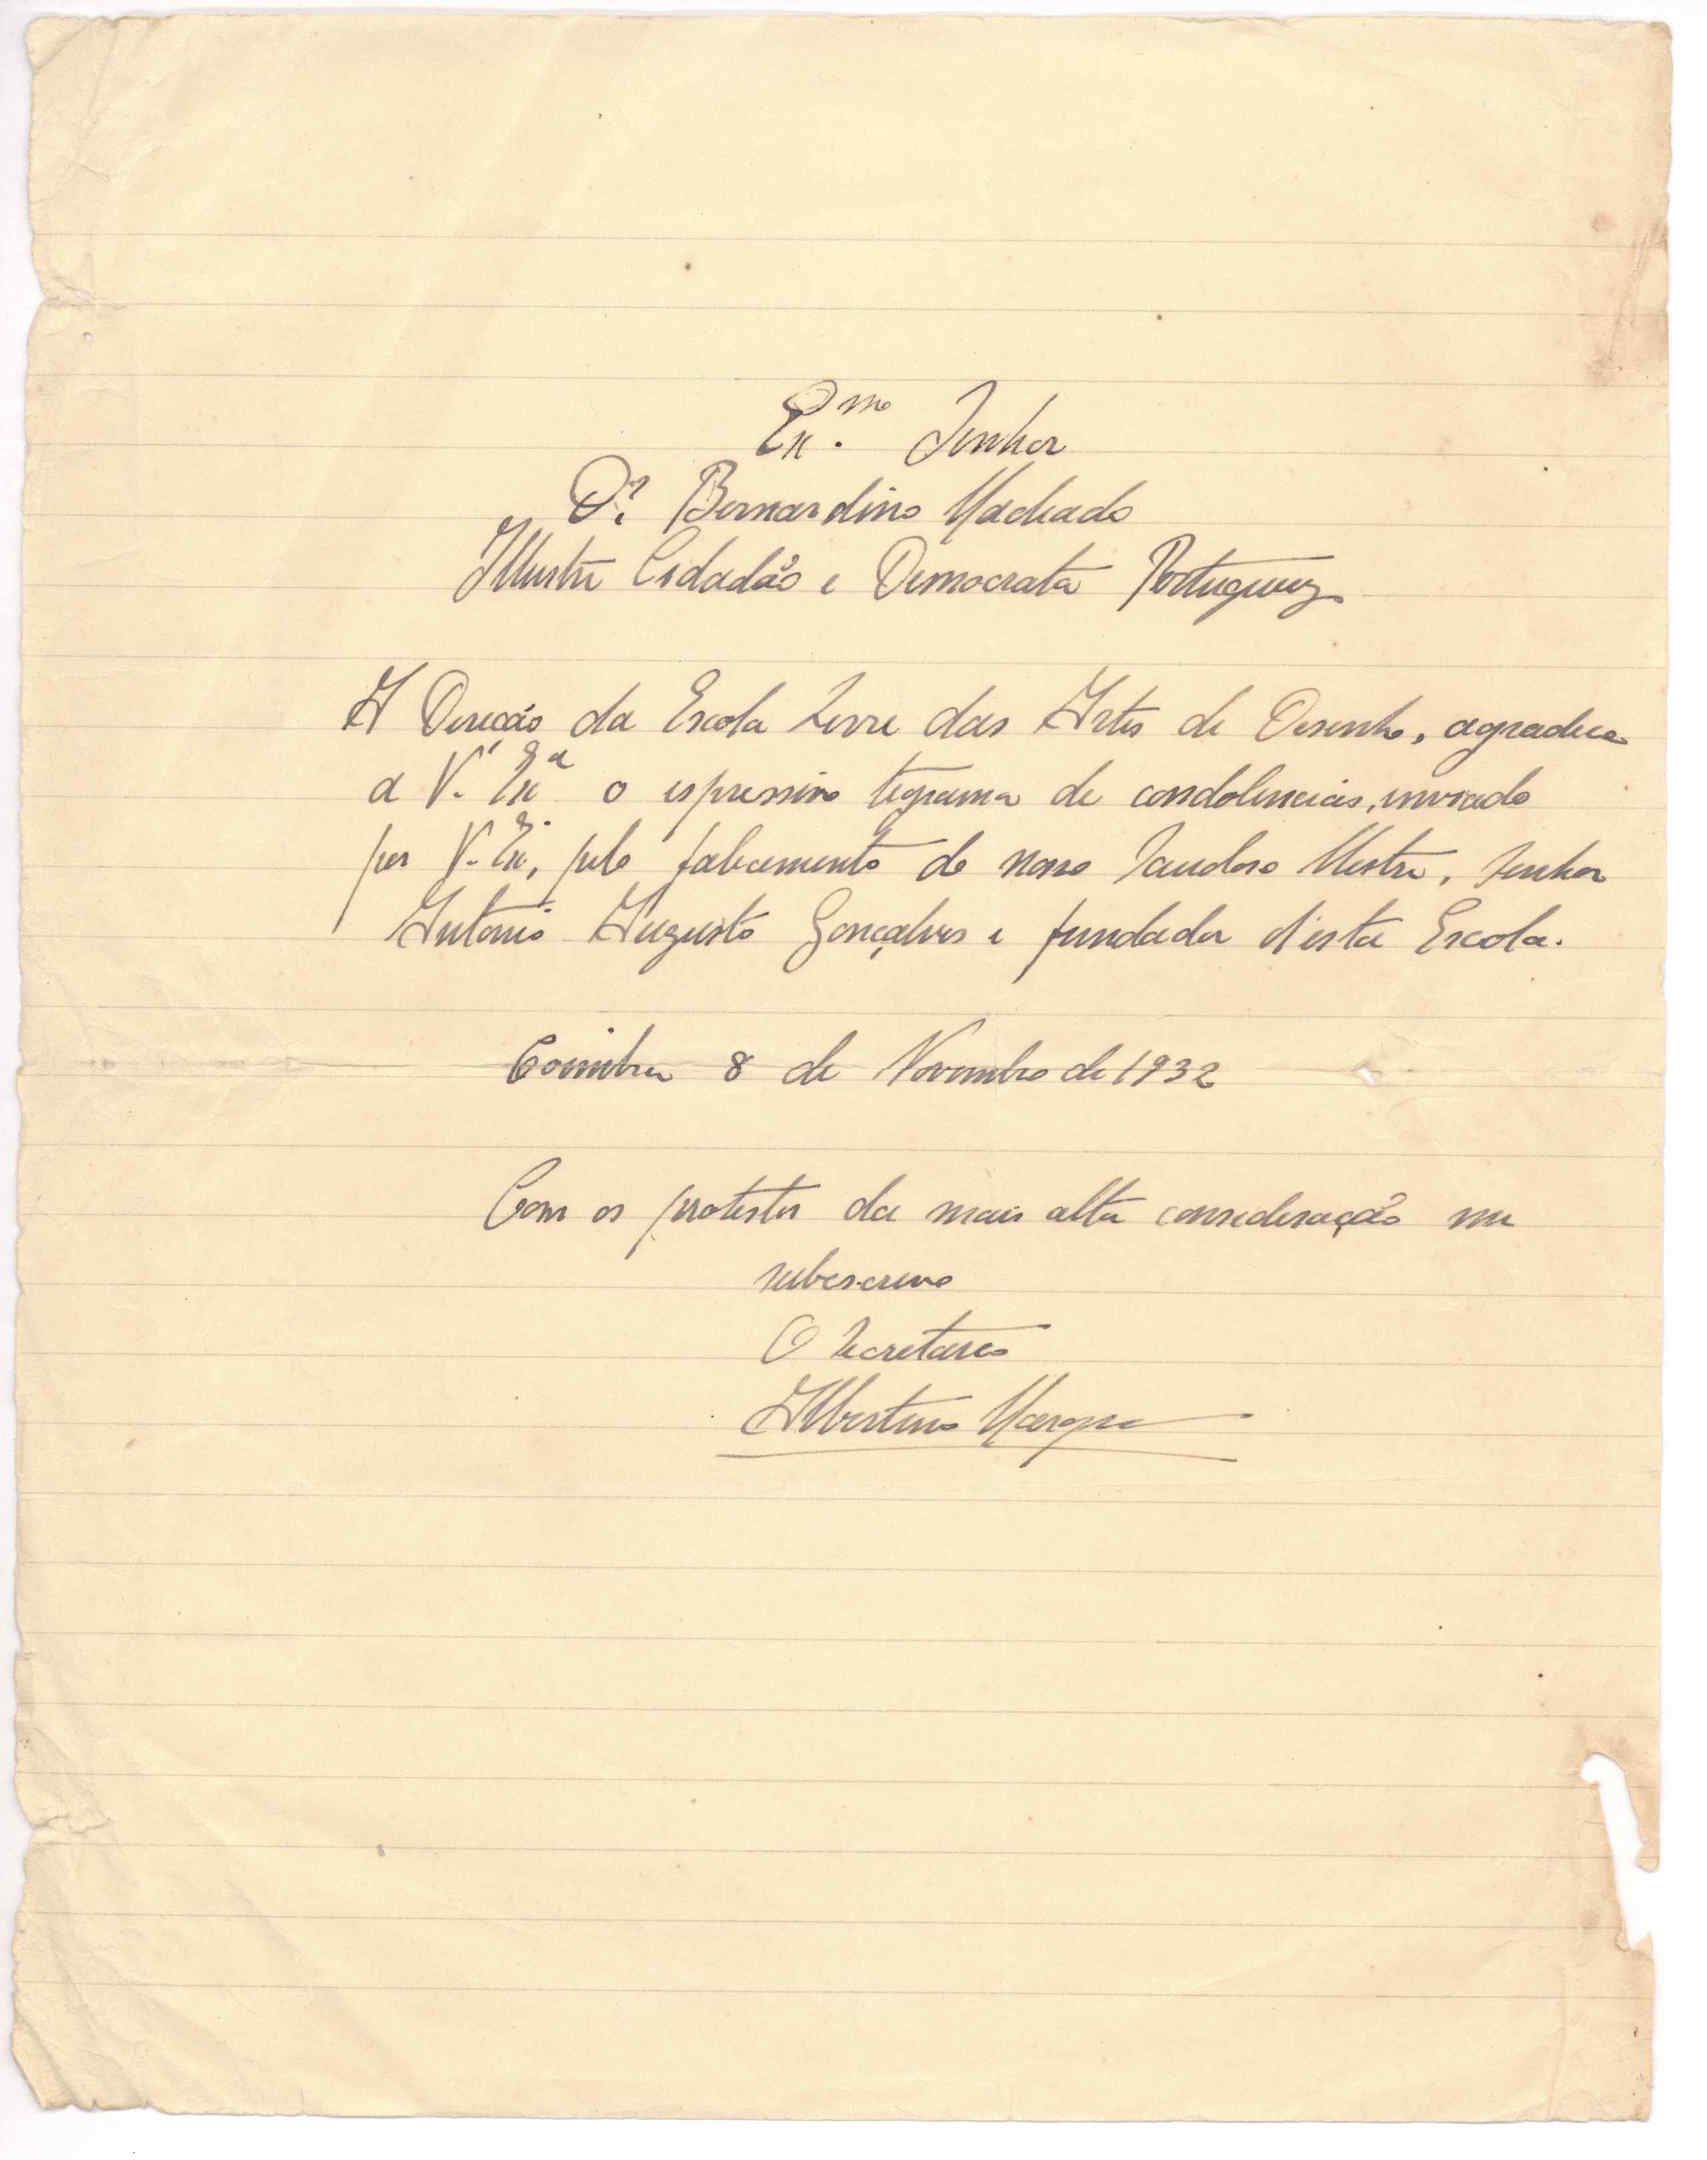 Ex.mo Senhor
Dr. Bernardino Machado
Illustre Cidadão e Democrata Portuguez
A Direcção da Escola Livre das Artes de Desenho, agradece
a V.ª Ex.ª o espressivo tegrama de condolencias, inviado
por V. Ex., pelo falecimento do nosso Saudoso Mestre, Senhor
Antonio Augusto Gonçalves e fundador d'esta Escola.
Coimbra 8 de Novembro de 1932
Com os protestos da mais alta consideração me
subescrevo
O Secretario
Albertino Marques